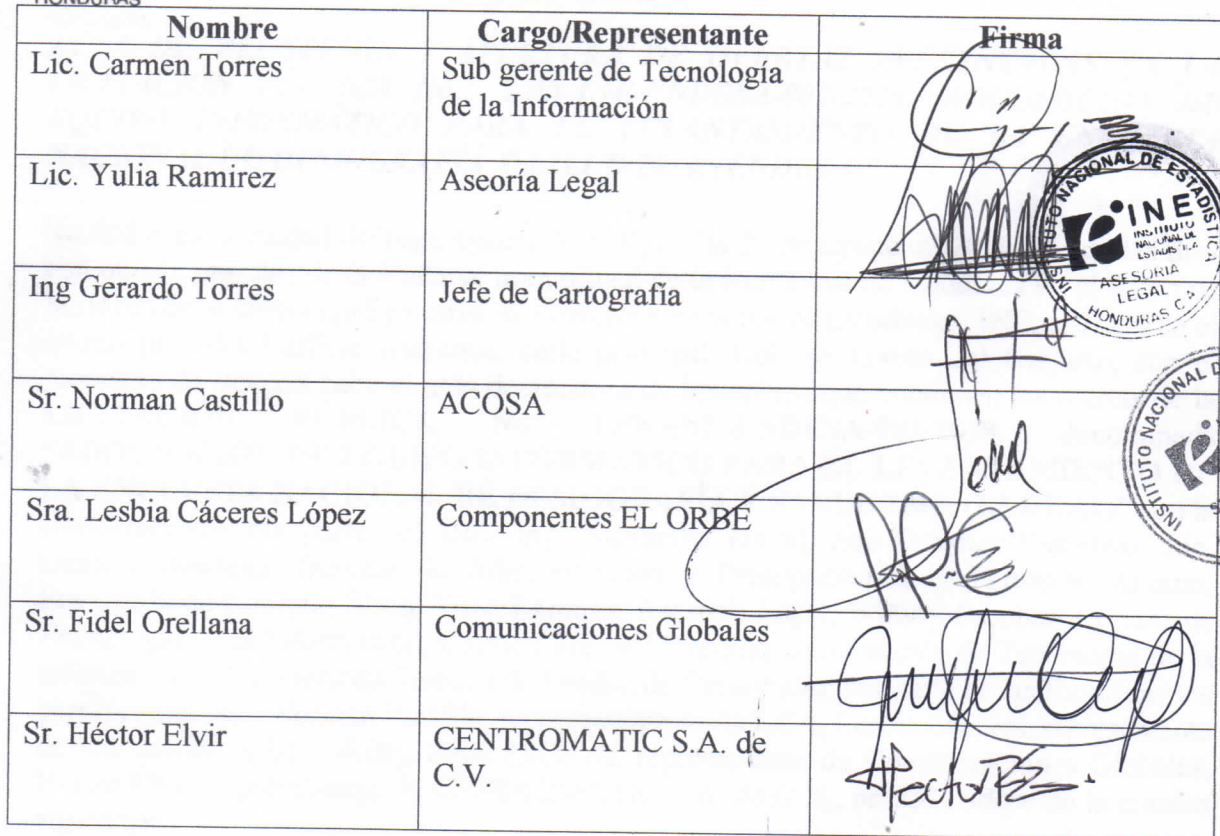 HONDURAS
Nombre Cargo/Representante Firma
Lic. Carmen Torres Sub gerente de Tecnología
de la Información
Lic. Yulia Ramirez Aseoría Legal
INSTITUTO NACIONAL DE ESTADISTICA
INE
INSTITUTO
NACIONAL DE
ESTADISTICA
ASESORIA
LEGAL
HONDURAS C.A.
Ing Gerardo Torres Jefe de Cartografía
Sr. Norman Castillo ACOSA
INSTITUTO NACIONAL D
Sra. Lesbia Cáceres López Componentes EL ORBE
Sr. Fidel Orellana Comunicaciones Globales
Sr. Héctor Elvir CENTROMATIC S.A. de
C.V.